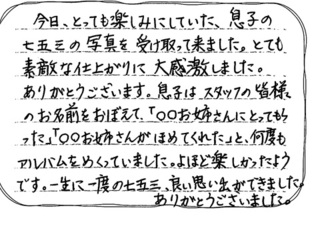 今日、とっても楽しみにしていた、息子の
七五三の写真を受け取って来ました。とても
素敵な仕上がりに大感激しました。
ありがとうございます。息子はスタッフの皆様
のお名前をおぼえて、「〇〇お姉さんにとってもら
った」「〇〇お姉さんがほめてくれた」と、何度も
アルバムをめくっていました。よほど楽しかったよう
です。一生に一度の七五三、良い思い出ができました。
ありがとうございました。